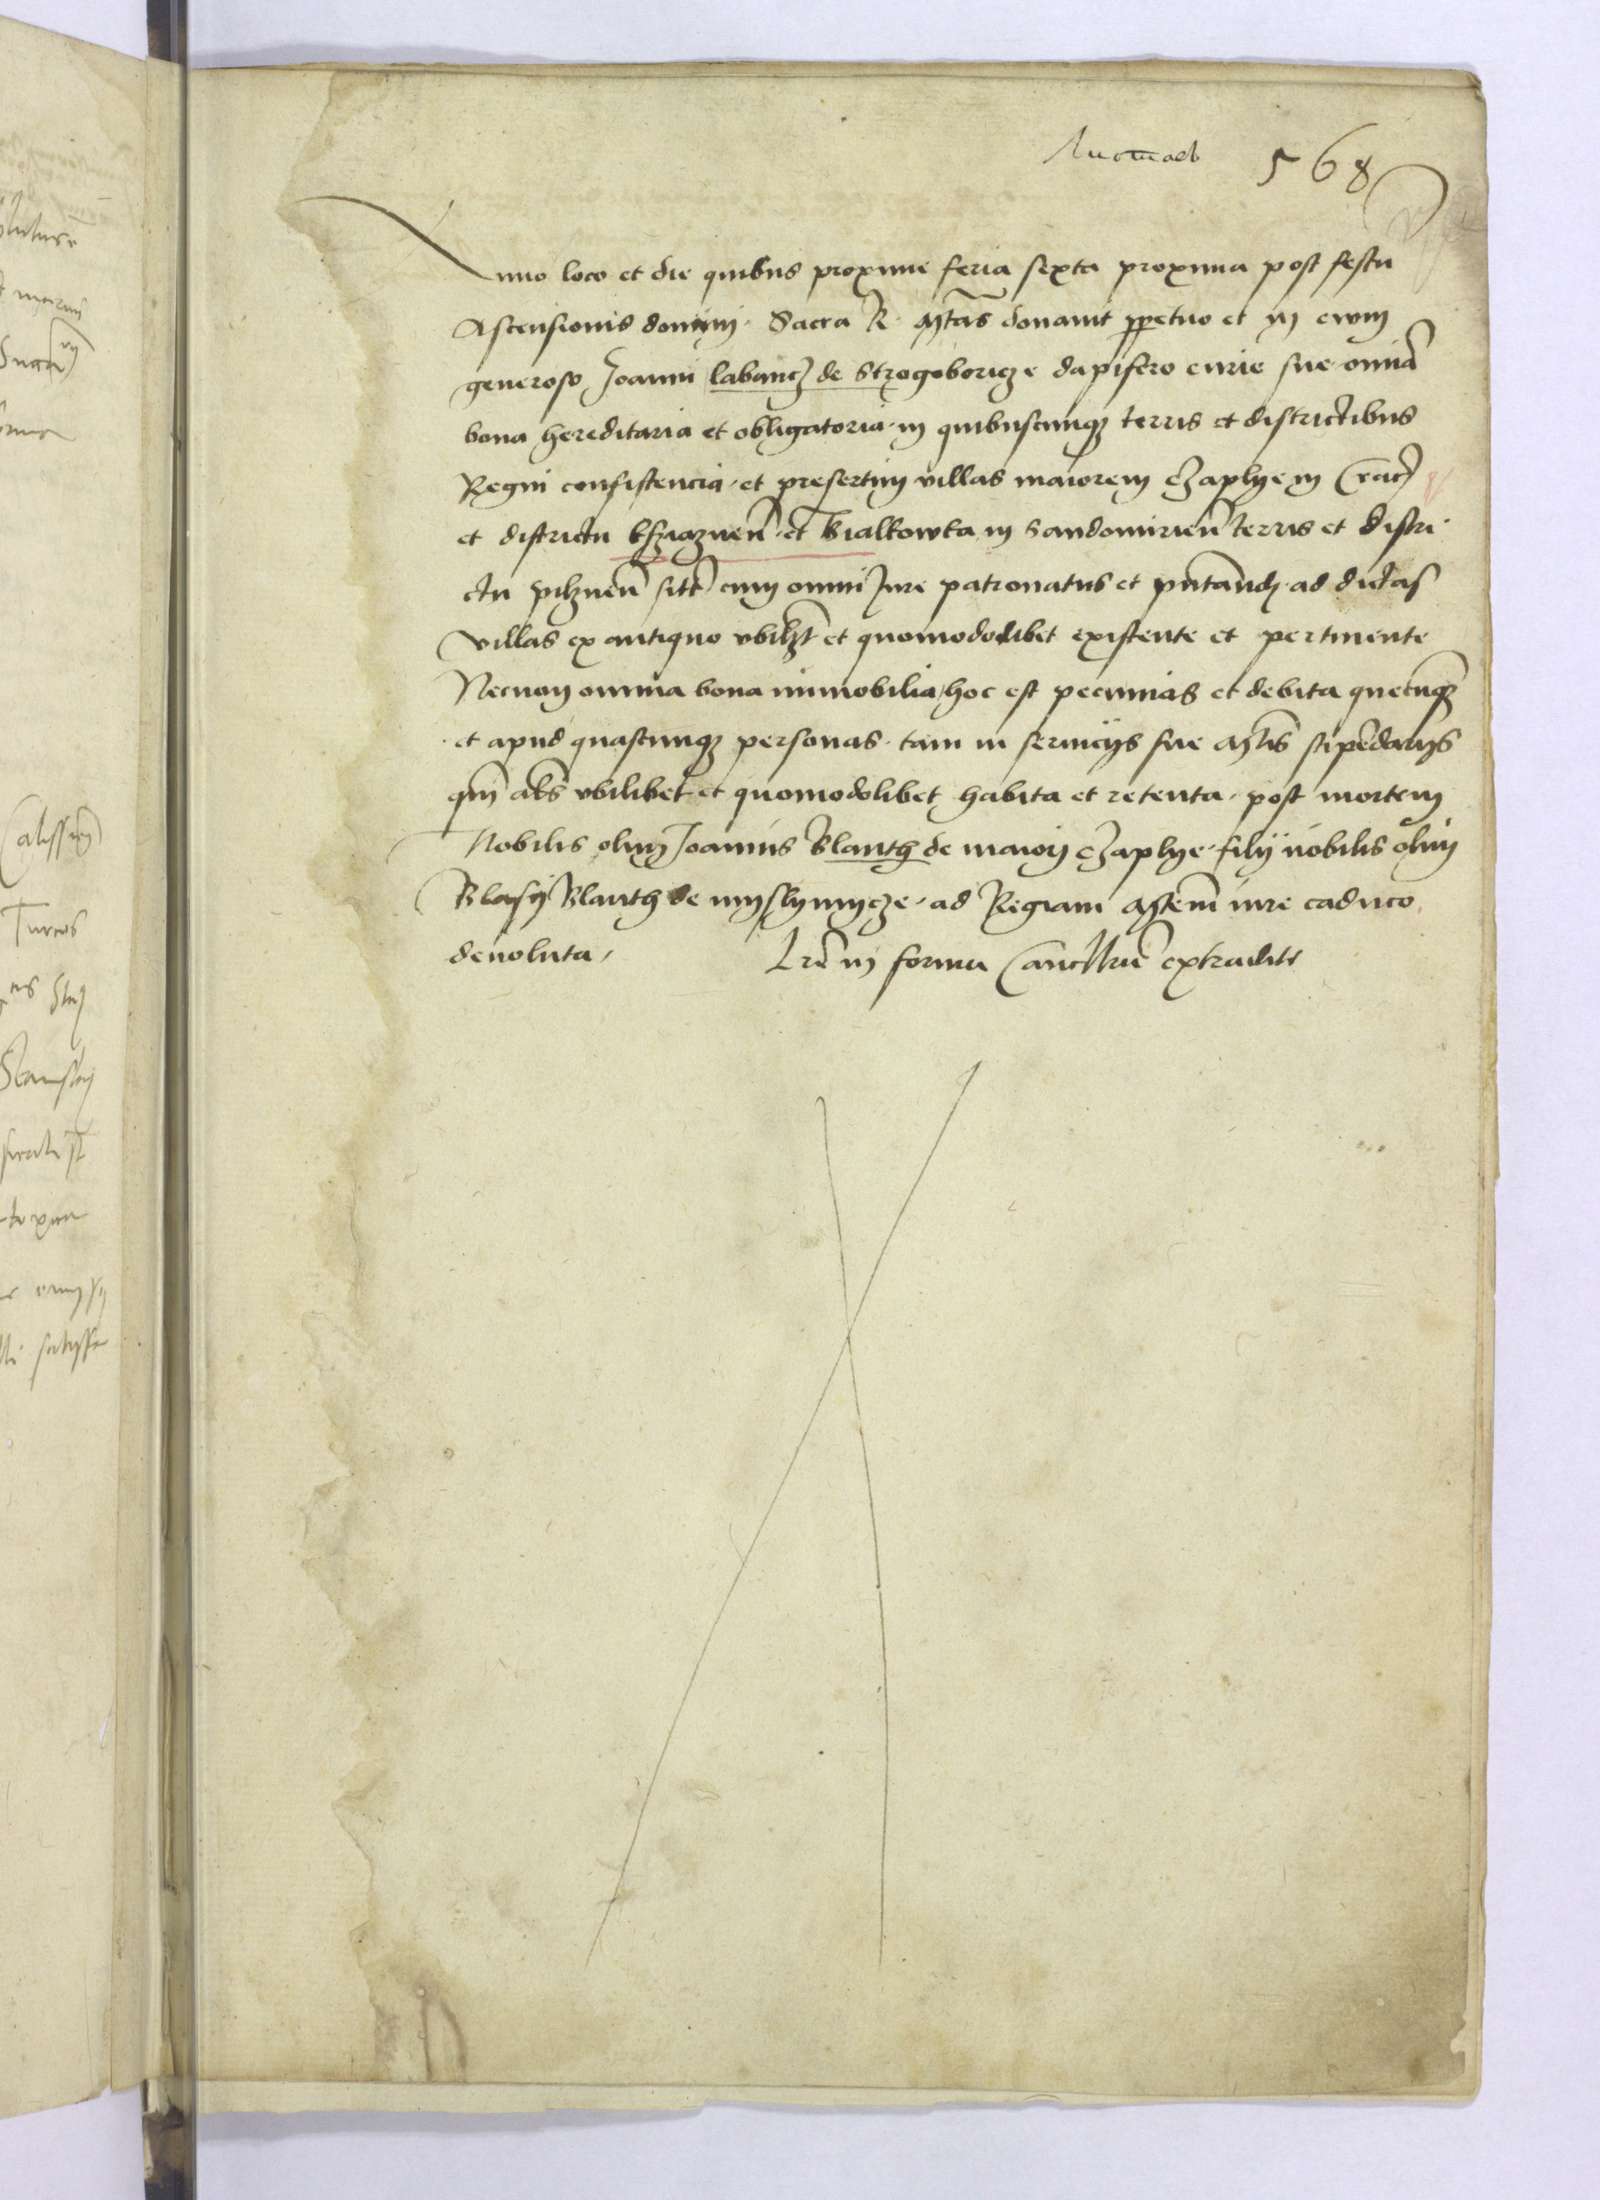 Листовъ 568
Anno loco et die quibus proxime feria sexta proxima post festu
Ascensionis domini. Sacra R. Mtas donavit ppetuo et in evum
generoso Joanni labancz de Strzegoboricze dapifero curie sue omia
bona hereditaria et obligatoria in quibuscunqz terris et districtibus
Regni consistencia et presertim villas maiorem Czaplye in Crac
et districtu Kszyazuen et Bialkowka in Sandomirien terris et distri
ctu pilznen sitt cum omni Jure patronatus et pntandi ad dictas
villas ex antiquo ubilzt et quomodolibet existente et pertinente
Necnon omnia bona immobilia hoc est pecunias et debita quecuqz
et apud quascunqz personas tam in serviciis sue Mtis stipedariis
qm aliis ubilibet et quomodolibet habita et retenta post mortem
Nobilis olim Joannis Blanth de maiori Czaplye filii nobilis olim
Blasii Blanth de myslymycze ad Regiam Mtem iure caduco
devoluta. Lre in forma Cancllrie extradite